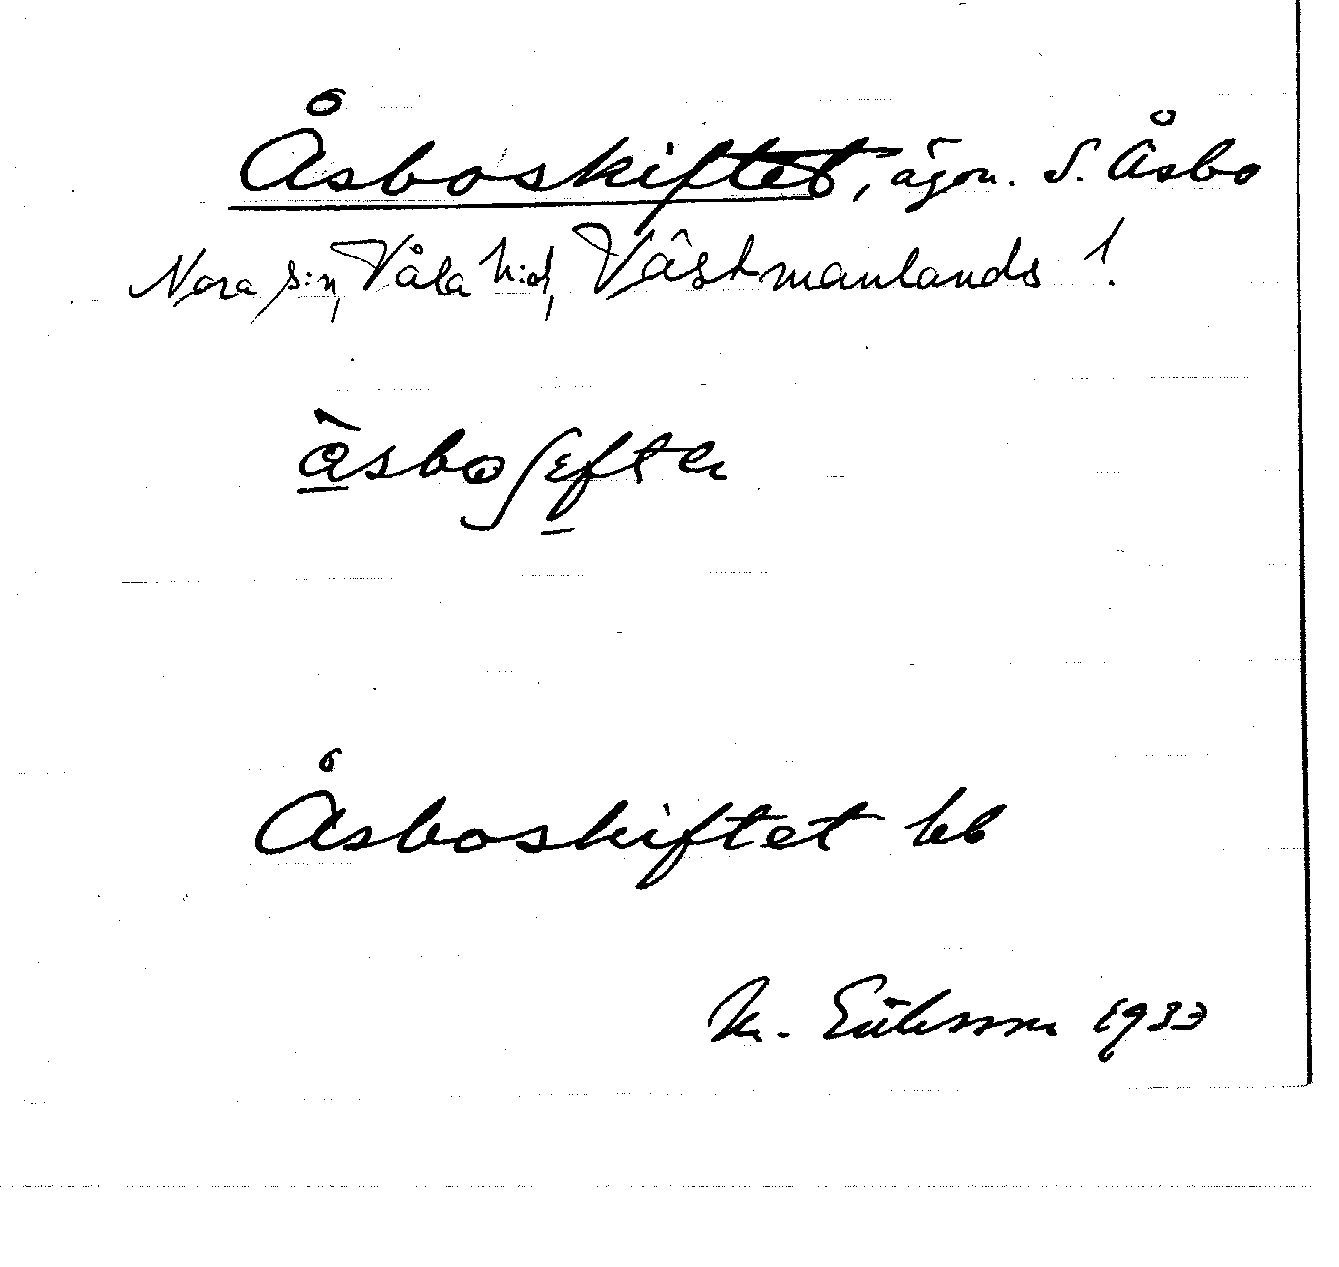 Åsboskiftet, ägon. S. Åsbo
Nora s:n, Våla h:d, Västmanlands l.
åsboʃɛftɛ
Åsboskiftet bb
M. Eriksson 1933